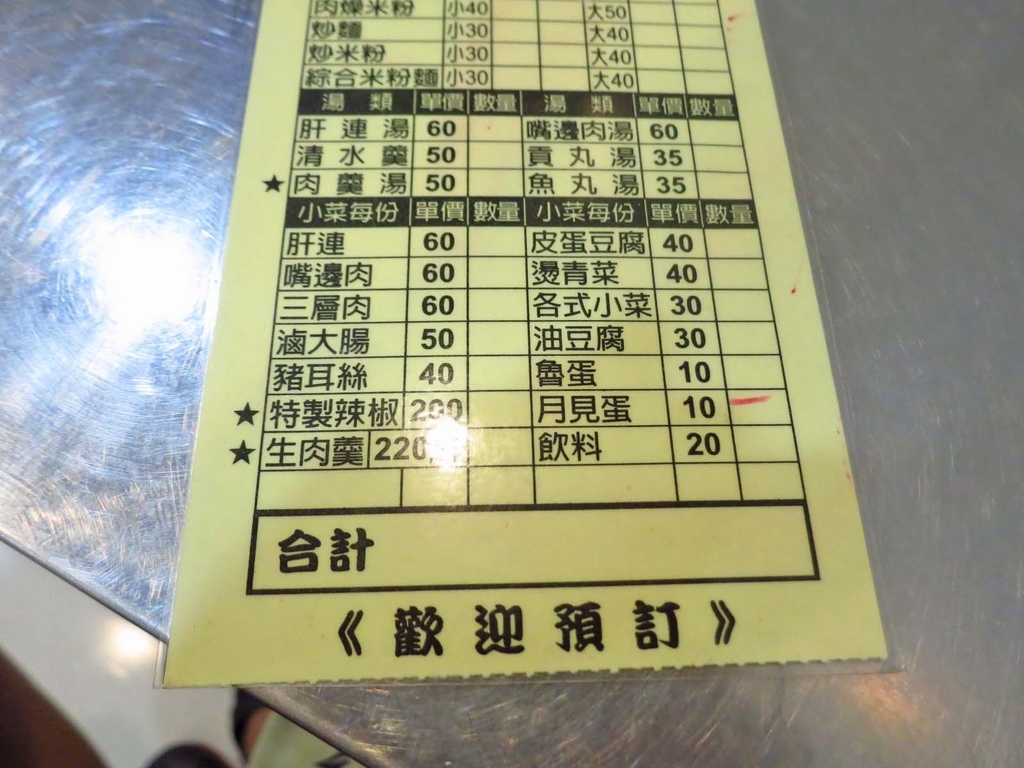 肉燥米粉 小40 大50
炒麵 小30 大40
炒米粉 小30 大40
綜合米粉麵 小30 大40
湯類 單價 數量 湯類 單價 數量
肝連湯 60 嘴邊肉湯 60
清水羹 50 貢丸湯 35
★ 肉羹湯 50 魚丸湯 35
小菜每份 單價 數量 小菜每份 單價 數量
肝連 60 皮蛋豆腐 40
嘴邊肉 60 燙青菜 40
三層肉 60 各式小菜 30
滷大腸 50 油豆腐 30
豬耳絲 40 魯蛋 10
★ 特製辣椒 200 月見蛋 10
★ 生肉羹 220 飲料 20
合計
《歡迎預訂》